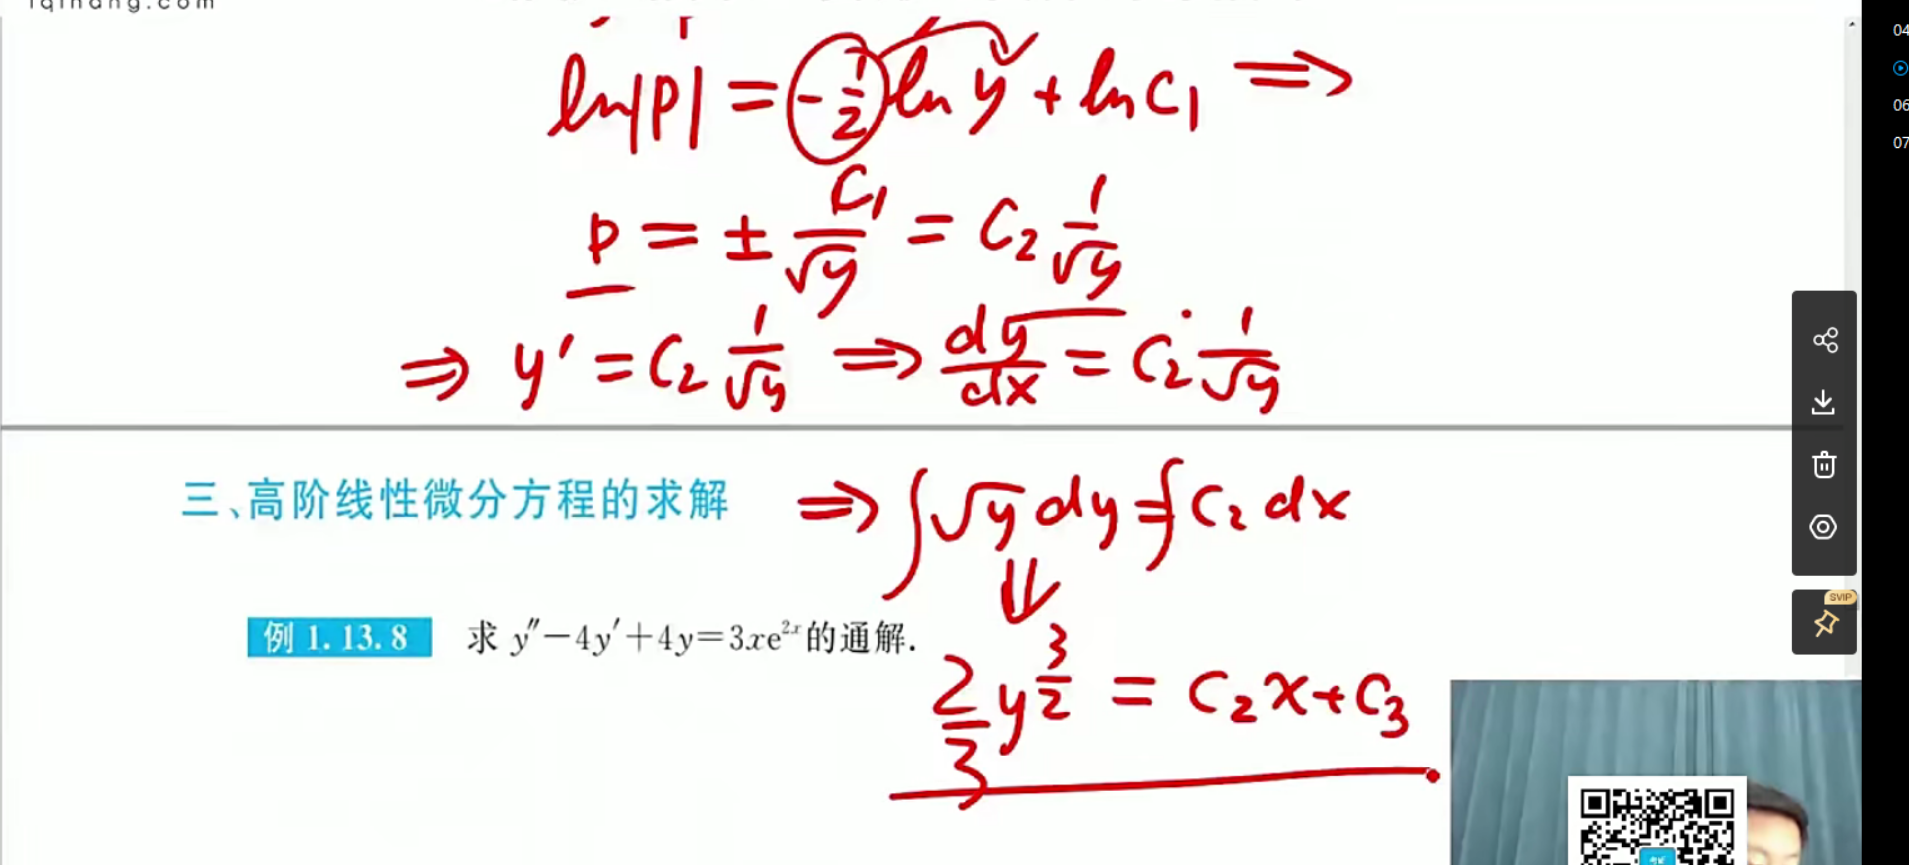 iqihang.com
ln|p| = -1/2 ln y + ln C₁ ⇒
p = ± C₁/√y = C₂ 1/√y
⇒ y′ = C₂ 1/√y ⇒ dy/dx = C₂ 1/√y
三、高阶线性微分方程的求解
⇒ ∫√y dy = ∫C₂ dx
⇓
例 1.13.8 求 y″−4y′+4y=3xe²ˣ的通解.
2/3 y^(3/2) = C₂x + C₃
04
06
07
SVIP